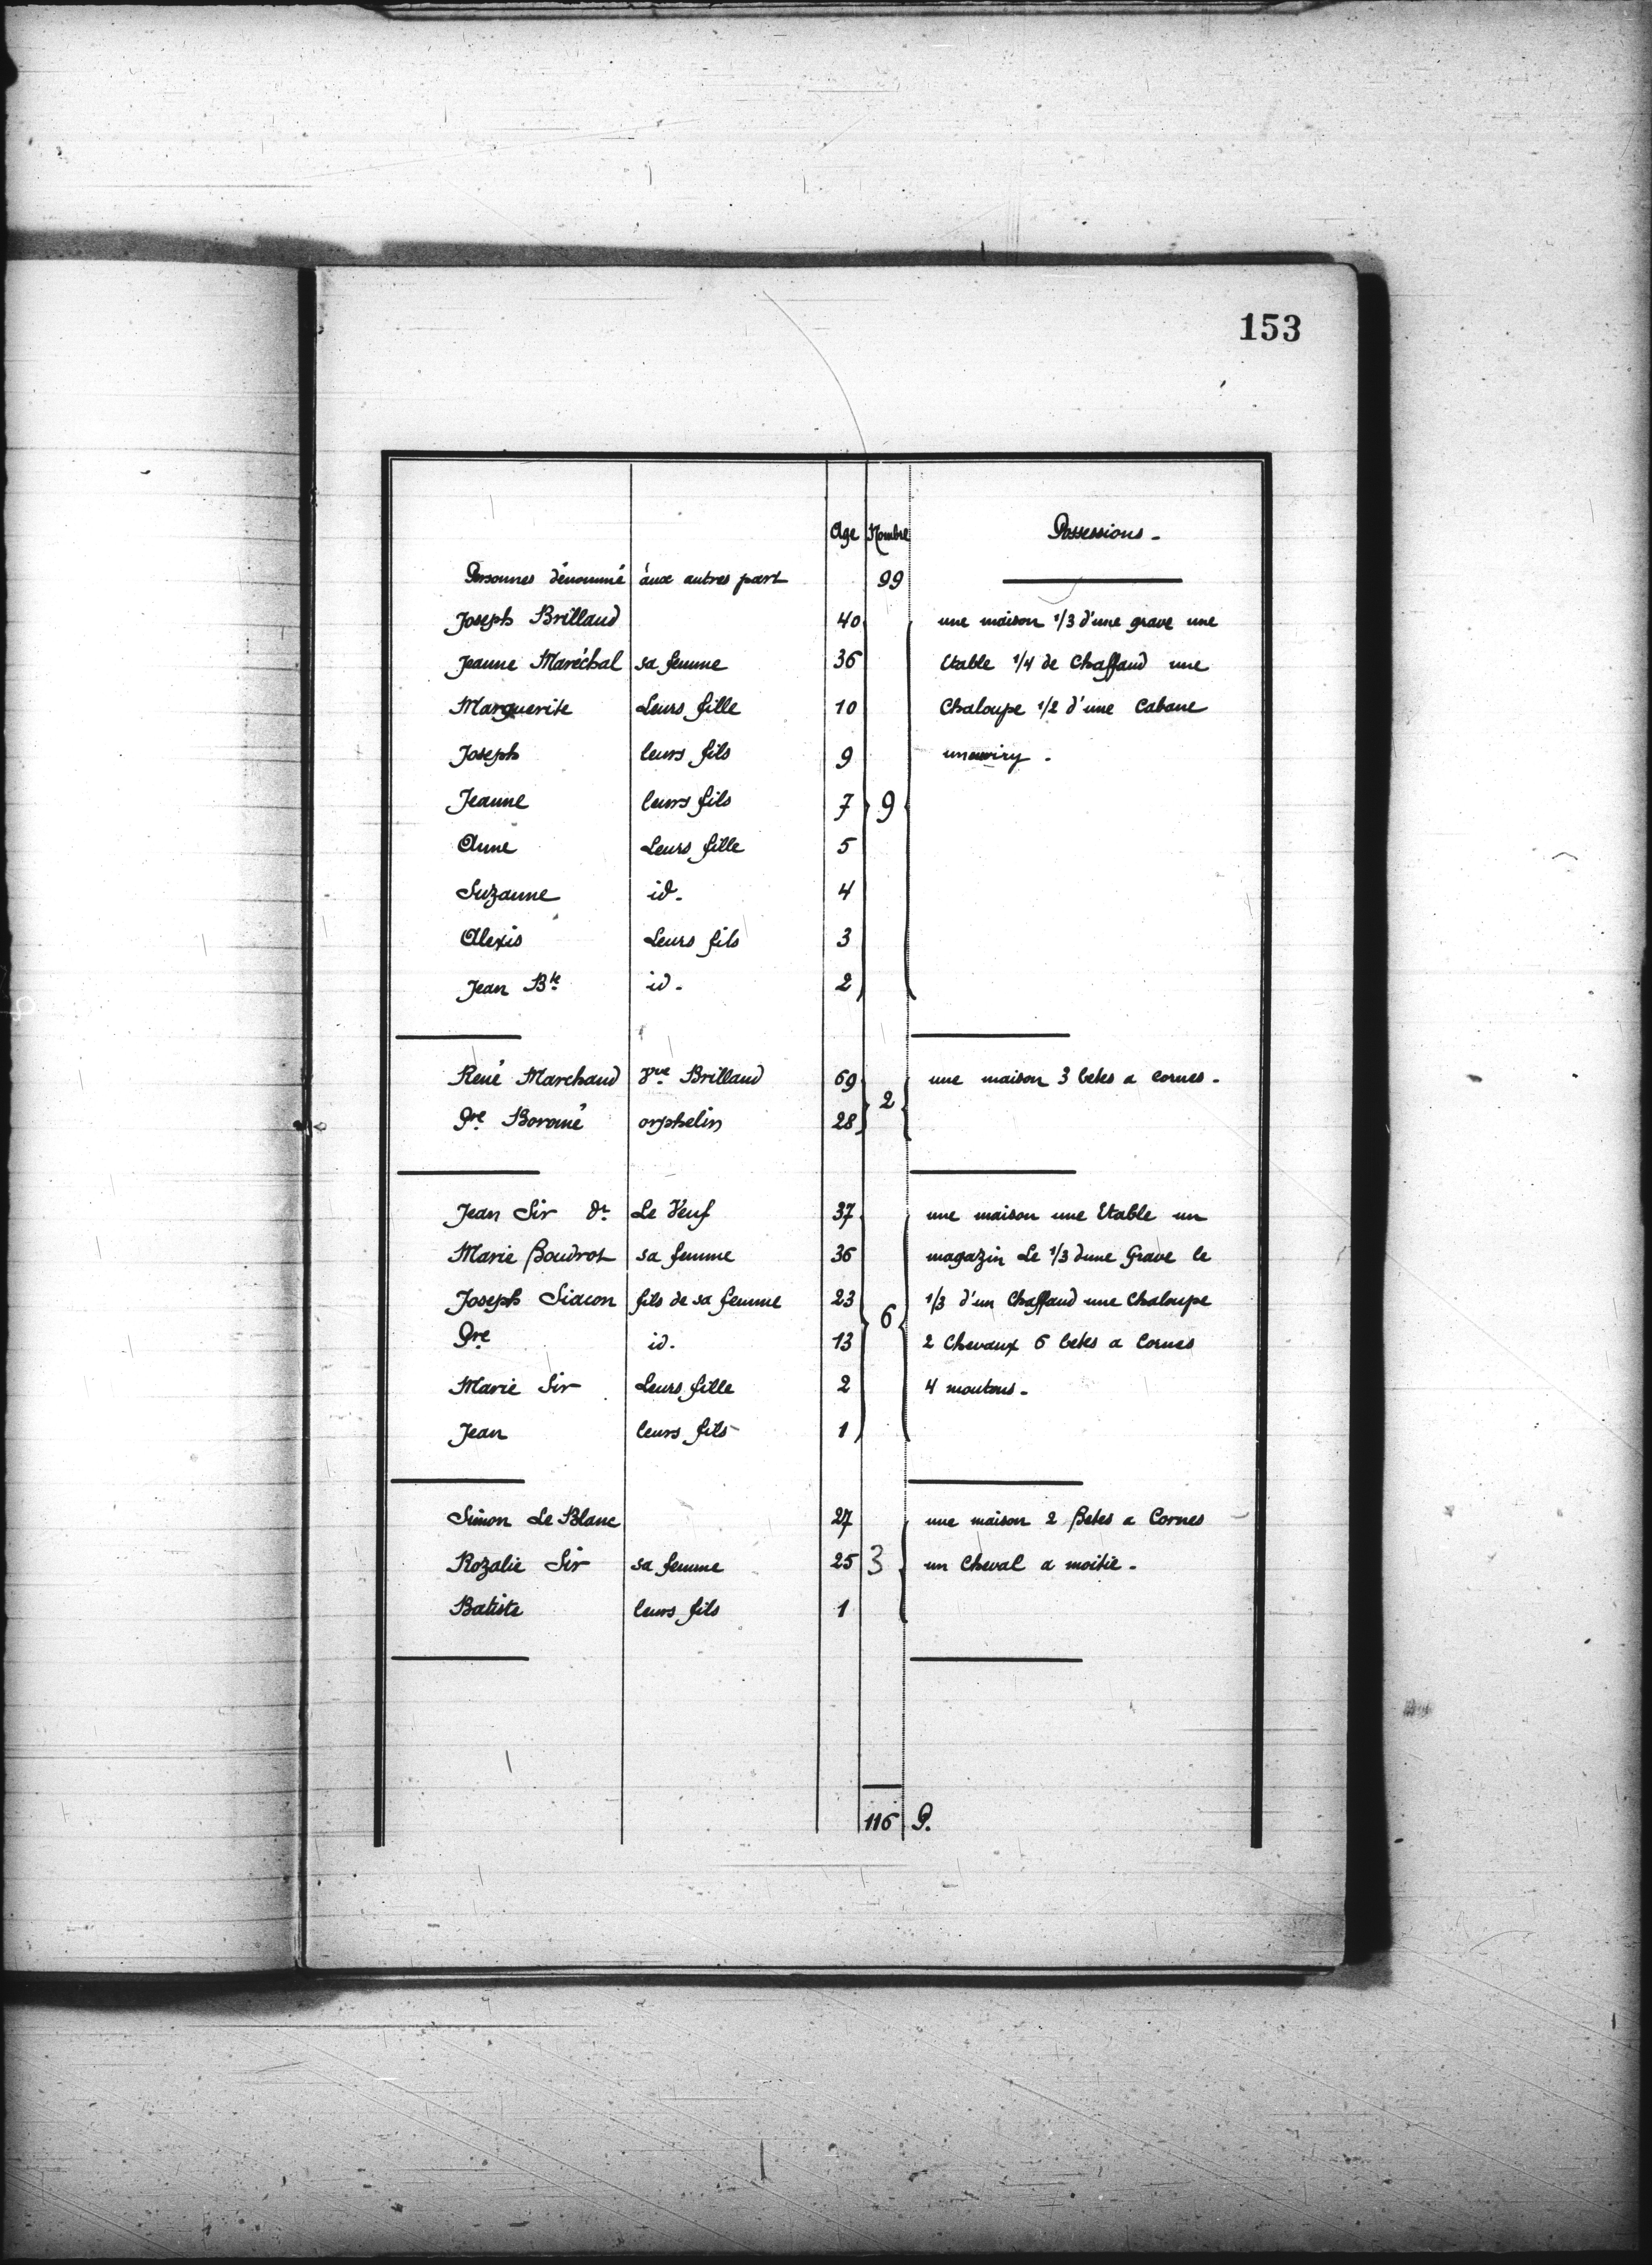 153
Age Nombre Possessions.
Personnes dénommé aux autres part 99
Joseph Brillaud 40 une maison 1/3 d'une grave une
Jeanne Maréchal sa femme 36 Etable 1/4 de Chaffaud une
Marguerite Leurs fille 10 Chaloupe 1/2 d'une Cabane
Joseph leurs fils 9
Jeanne leurs fils 7 9
Anne Leurs fille 5
Suzanne id. 4
Alexis Leurs fils 3
Jean Bte id. 2
René Marchaud Vve Brillaud 69 une maison 3 betes a cornes.
Pre Boromé orphelin 28 2
Jean Sir dt Le Veuf 37 une maison une Etable un
Marie Boudrot sa femme 36 magazin Le 1/3 dune Grave le
Joseph Siacon fils de sa femme 23 1/3 d'un Chaffaud une Chaloupe
Pre id. 13 6 2 Chevaux 6 betes a Cornes
Marie Sir Leurs fille 2 4 moutons.
Jean leurs fils 1
Simon Le Blanc 27 une maison 2 Betes a Cornes
Rozalie Sir sa femme 25 3 un Cheval a moitie.
Batiste leurs fils 1
116 P.